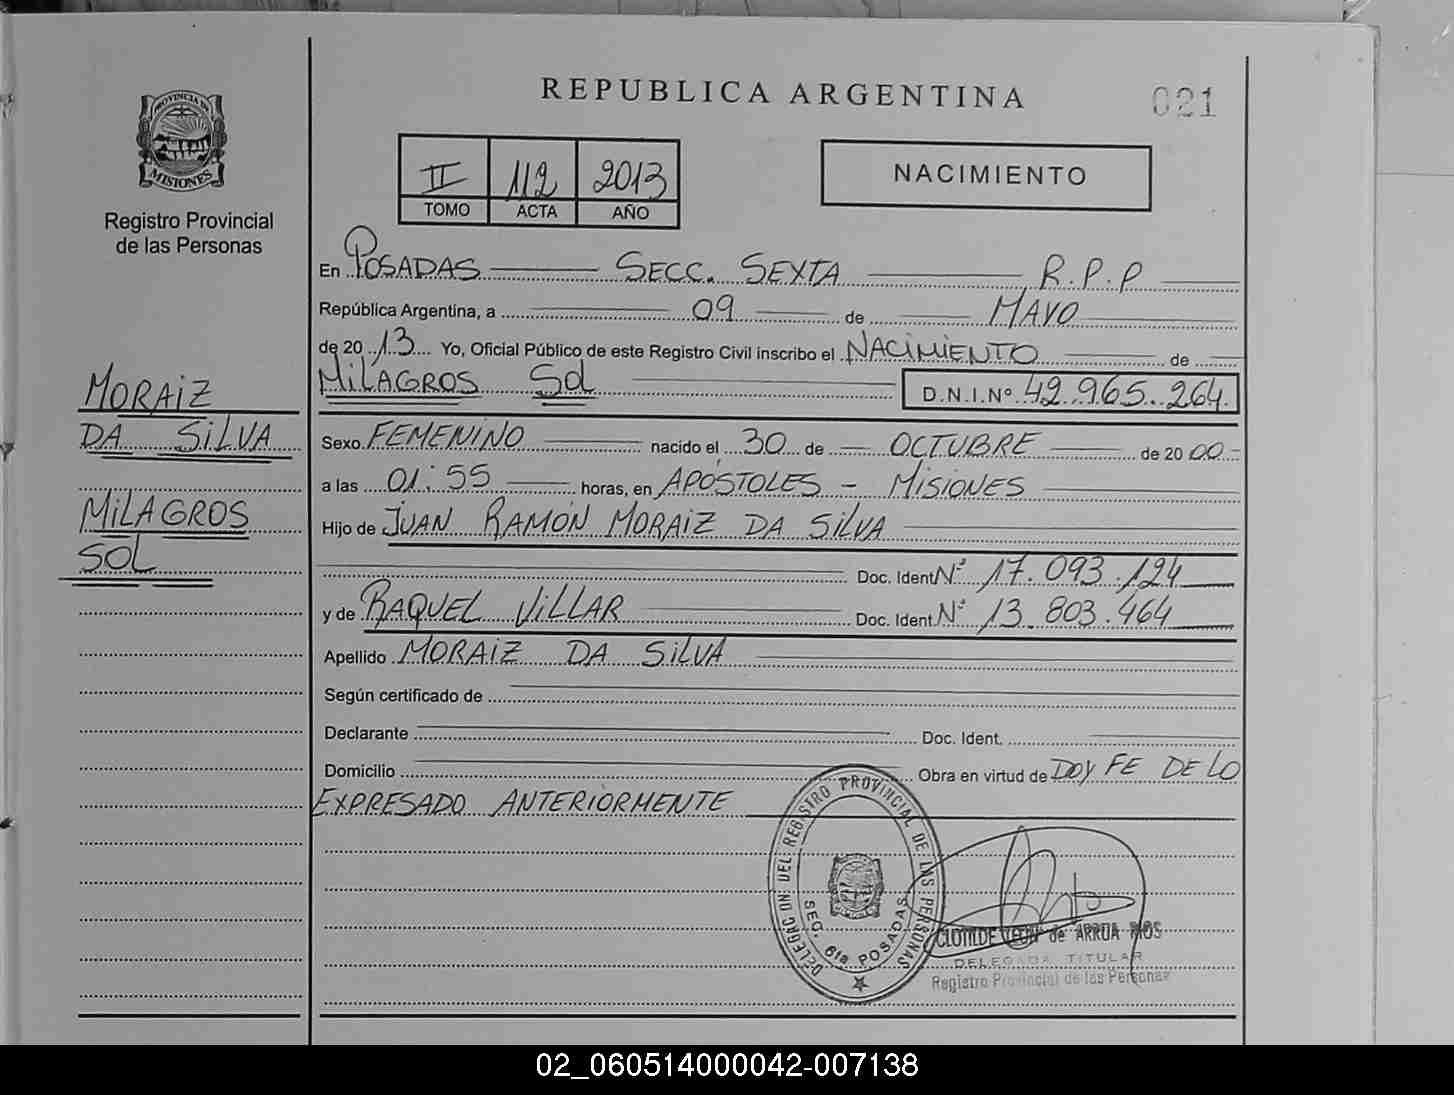 REPUBLICA ARGENTINA
021
PROVINCIA DE
MISIONES
Registro Provincial
de las Personas
II 112 2013
TOMO ACTA AÑO
NACIMIENTO
En POSADAS SECC. SEXTA R.P.P
República Argentina, a 09 de MAYO
de 2013 Yo, Oficial Público de este Registro Civil inscribo el NACIMIENTO de
MILAGROS SOL D.N.I.Nº 42.965.264
MORAIZ
DA SILVA
MILAGROS
SOL
Sexo FEMENINO nacido el 30 de OCTUBRE de 2000
a las 01:55 horas, en APÓSTOLES - MISIONES
Hijo de JUAN RAMÓN MORAIZ DA SILVA
Doc. Ident Nº 17.093.124
y de RAQUEL VILLAR Doc. Ident. Nº 13.803.464
Apellido MORAIZ DA SILVA
Según certificado de
Declarante Doc. Ident.
Domicilio Obra en virtud de DOY FE DE LO
EXPRESADO ANTERIORMENTE
DELEGACION DEL REGISTRO PROVINCIAL DE LAS PERSONAS
SEC. 6ta POSADAS
CLOTILDE de ARRUA RIOS
DELEGADA TITULAR
Registro Provincial de las Personas
02_060514000042-007138